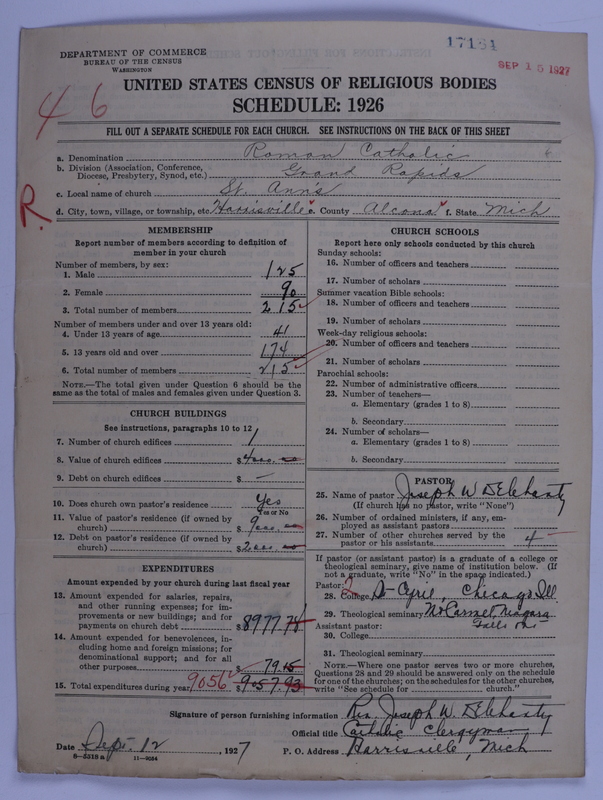 17161
SEP 15 1927
DEPARTMENT OF COMMERCE
BUREAU OF THE CENSUS
WASHINGTON
UNITED STATES CENSUS OF RELIGIOUS BODIES
SCHEDULE: 1926
4 6
FILL OUT A SEPARATE SCHEDULE FOR EACH CHURCH. SEE INSTRUCTIONS ON THE BACK OF THIS SHEET
a. Denomination Roman Catholic
b. Division (Association, Conference, Diocese, Presbytery, Synod, etc.) Grand Rapids
c. Local name of church St. Ann's
R.
d. City, town, village, or township, etc. Harrisville e. County Alcona f. State Mich
MEMBERSHIP
Report number of members according to definition of
member in your church
Number of members, by sex:
1. Male 125
2. Female 90
3. Total number of members 215
Number of members under and over 13 years old:
4. Under 13 years of age 41
5. 13 years old and over 174
6. Total number of members 215
NOTE.—The total given under Question 6 should be the
same as the total of males and females given under Question 3.
CHURCH BUILDINGS
See instructions, paragraphs 10 to 12
7. Number of church edifices 1
8. Value of church edifices $ 4000.00
9. Debt on church edifices $ —
10. Does church own pastor's residence Yes
Yes or No
11. Value of pastor's residence (if owned by
church) $ 9000.00
12. Debt on pastor's residence (if owned by
church) $ 2000.00
EXPENDITURES
Amount expended by your church during last fiscal year
13. Amount expended for salaries, repairs,
and other running expenses; for im-
provements or new buildings; and for
payments on church debt $ 8977.78
14. Amount expended for benevolences, in-
cluding home and foreign missions; for
denominational support; and for all
other purposes $ 79.15
15. Total expenditures during year 9056 $ 9057.93
CHURCH SCHOOLS
Report here only schools conducted by this church
Sunday schools:
16. Number of officers and teachers
17. Number of scholars
Summer vacation Bible schools:
18. Number of officers and teachers
19. Number of scholars
Week-day religious schools:
20. Number of officers and teachers
21. Number of scholars
Parochial schools:
22. Number of administrative officers
23. Number of teachers—
a. Elementary (grades 1 to 8)
b. Secondary
24. Number of scholars—
a. Elementary (grades 1 to 8)
b. Secondary
PASTOR
25. Name of pastor Joseph W. Delehanty
(If church has no pastor, write "None")
26. Number of ordained ministers, if any, em-
ployed as assistant pastors
27. Number of other churches served by the
pastor or his assistants 4
If pastor (or assistant pastor) is a graduate of a college or
theological seminary, give name of institution below. (If
not a graduate, write "No" in the space indicated.)
Pastor: 2
28. College St Cyril, Chicago, Ill
29. Theological seminary Mt Carmel Niagara
Falls Ont
Assistant pastor:
30. College
31. Theological seminary
NOTE.—Where one pastor serves two or more churches,
Questions 28 and 29 should be answered only on the schedule
for one of the churches; on the schedules for the other churches,
write "See schedule for church."
Signature of person furnishing information Rev. Joseph W. Delehanty
Official title Catholic Clergyman
Date Sept. 12, 1927 P. O. Address Harrisville, Mich
8—5319 a 11—9034